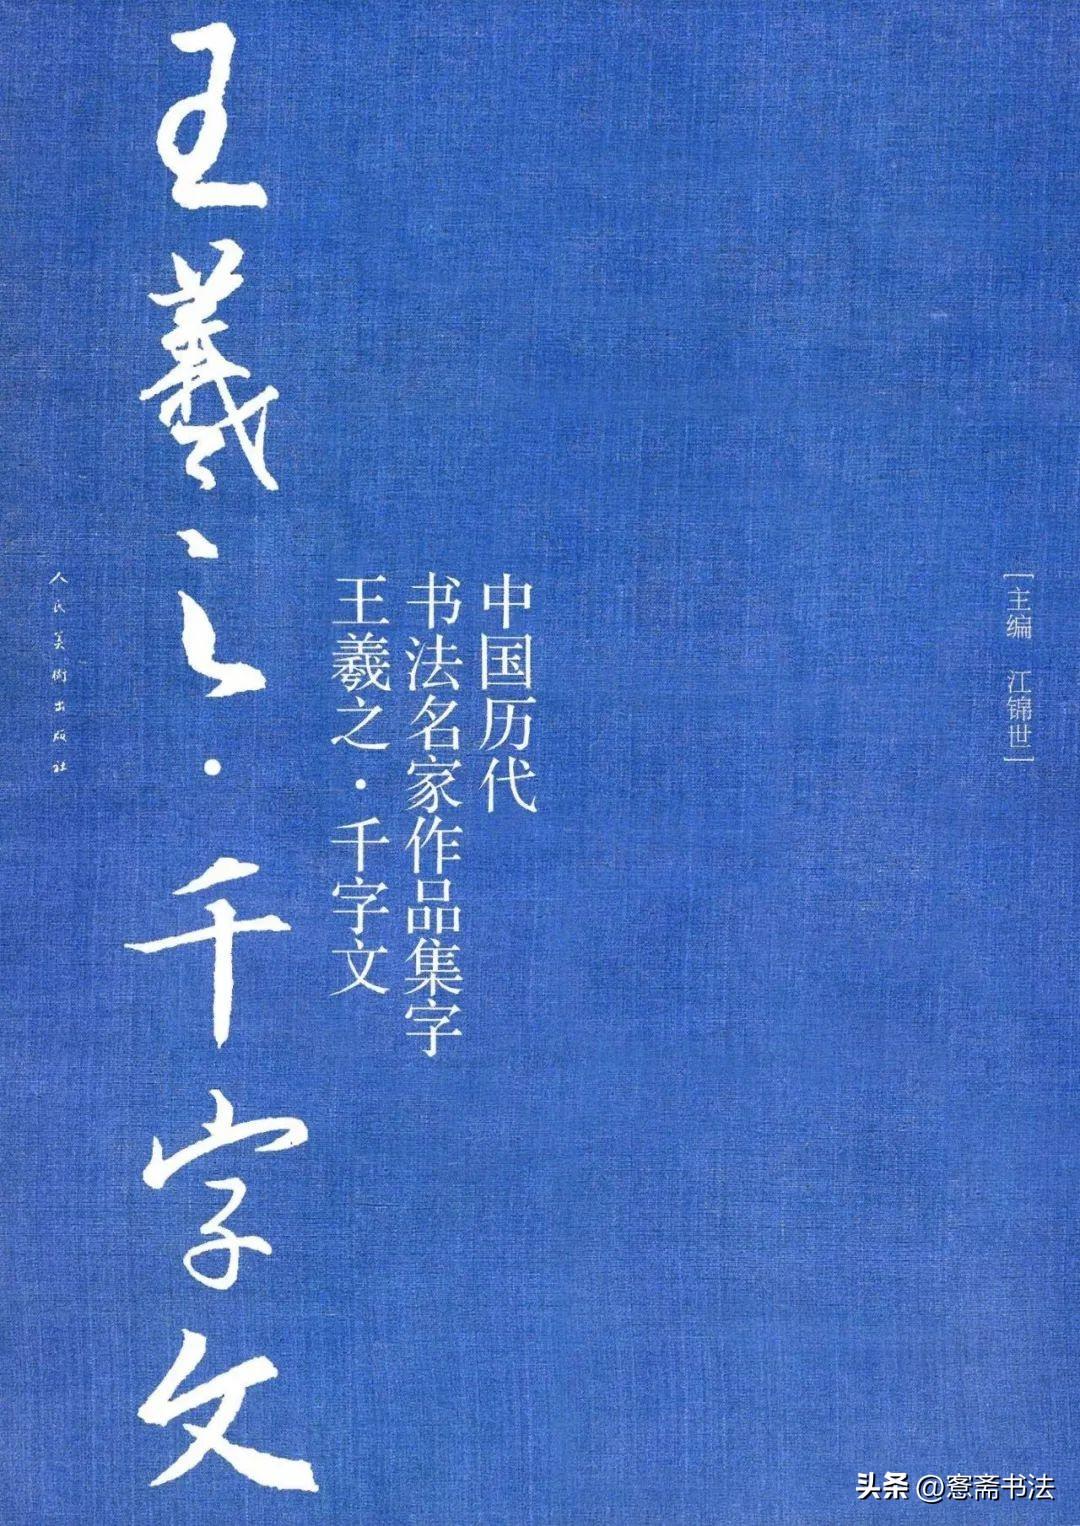 [主编 江锦世]
中国历代
书法名家作品集字
王羲之·千字文
王羲之·千字文
人民美術出版社
头条 @愙斋书法